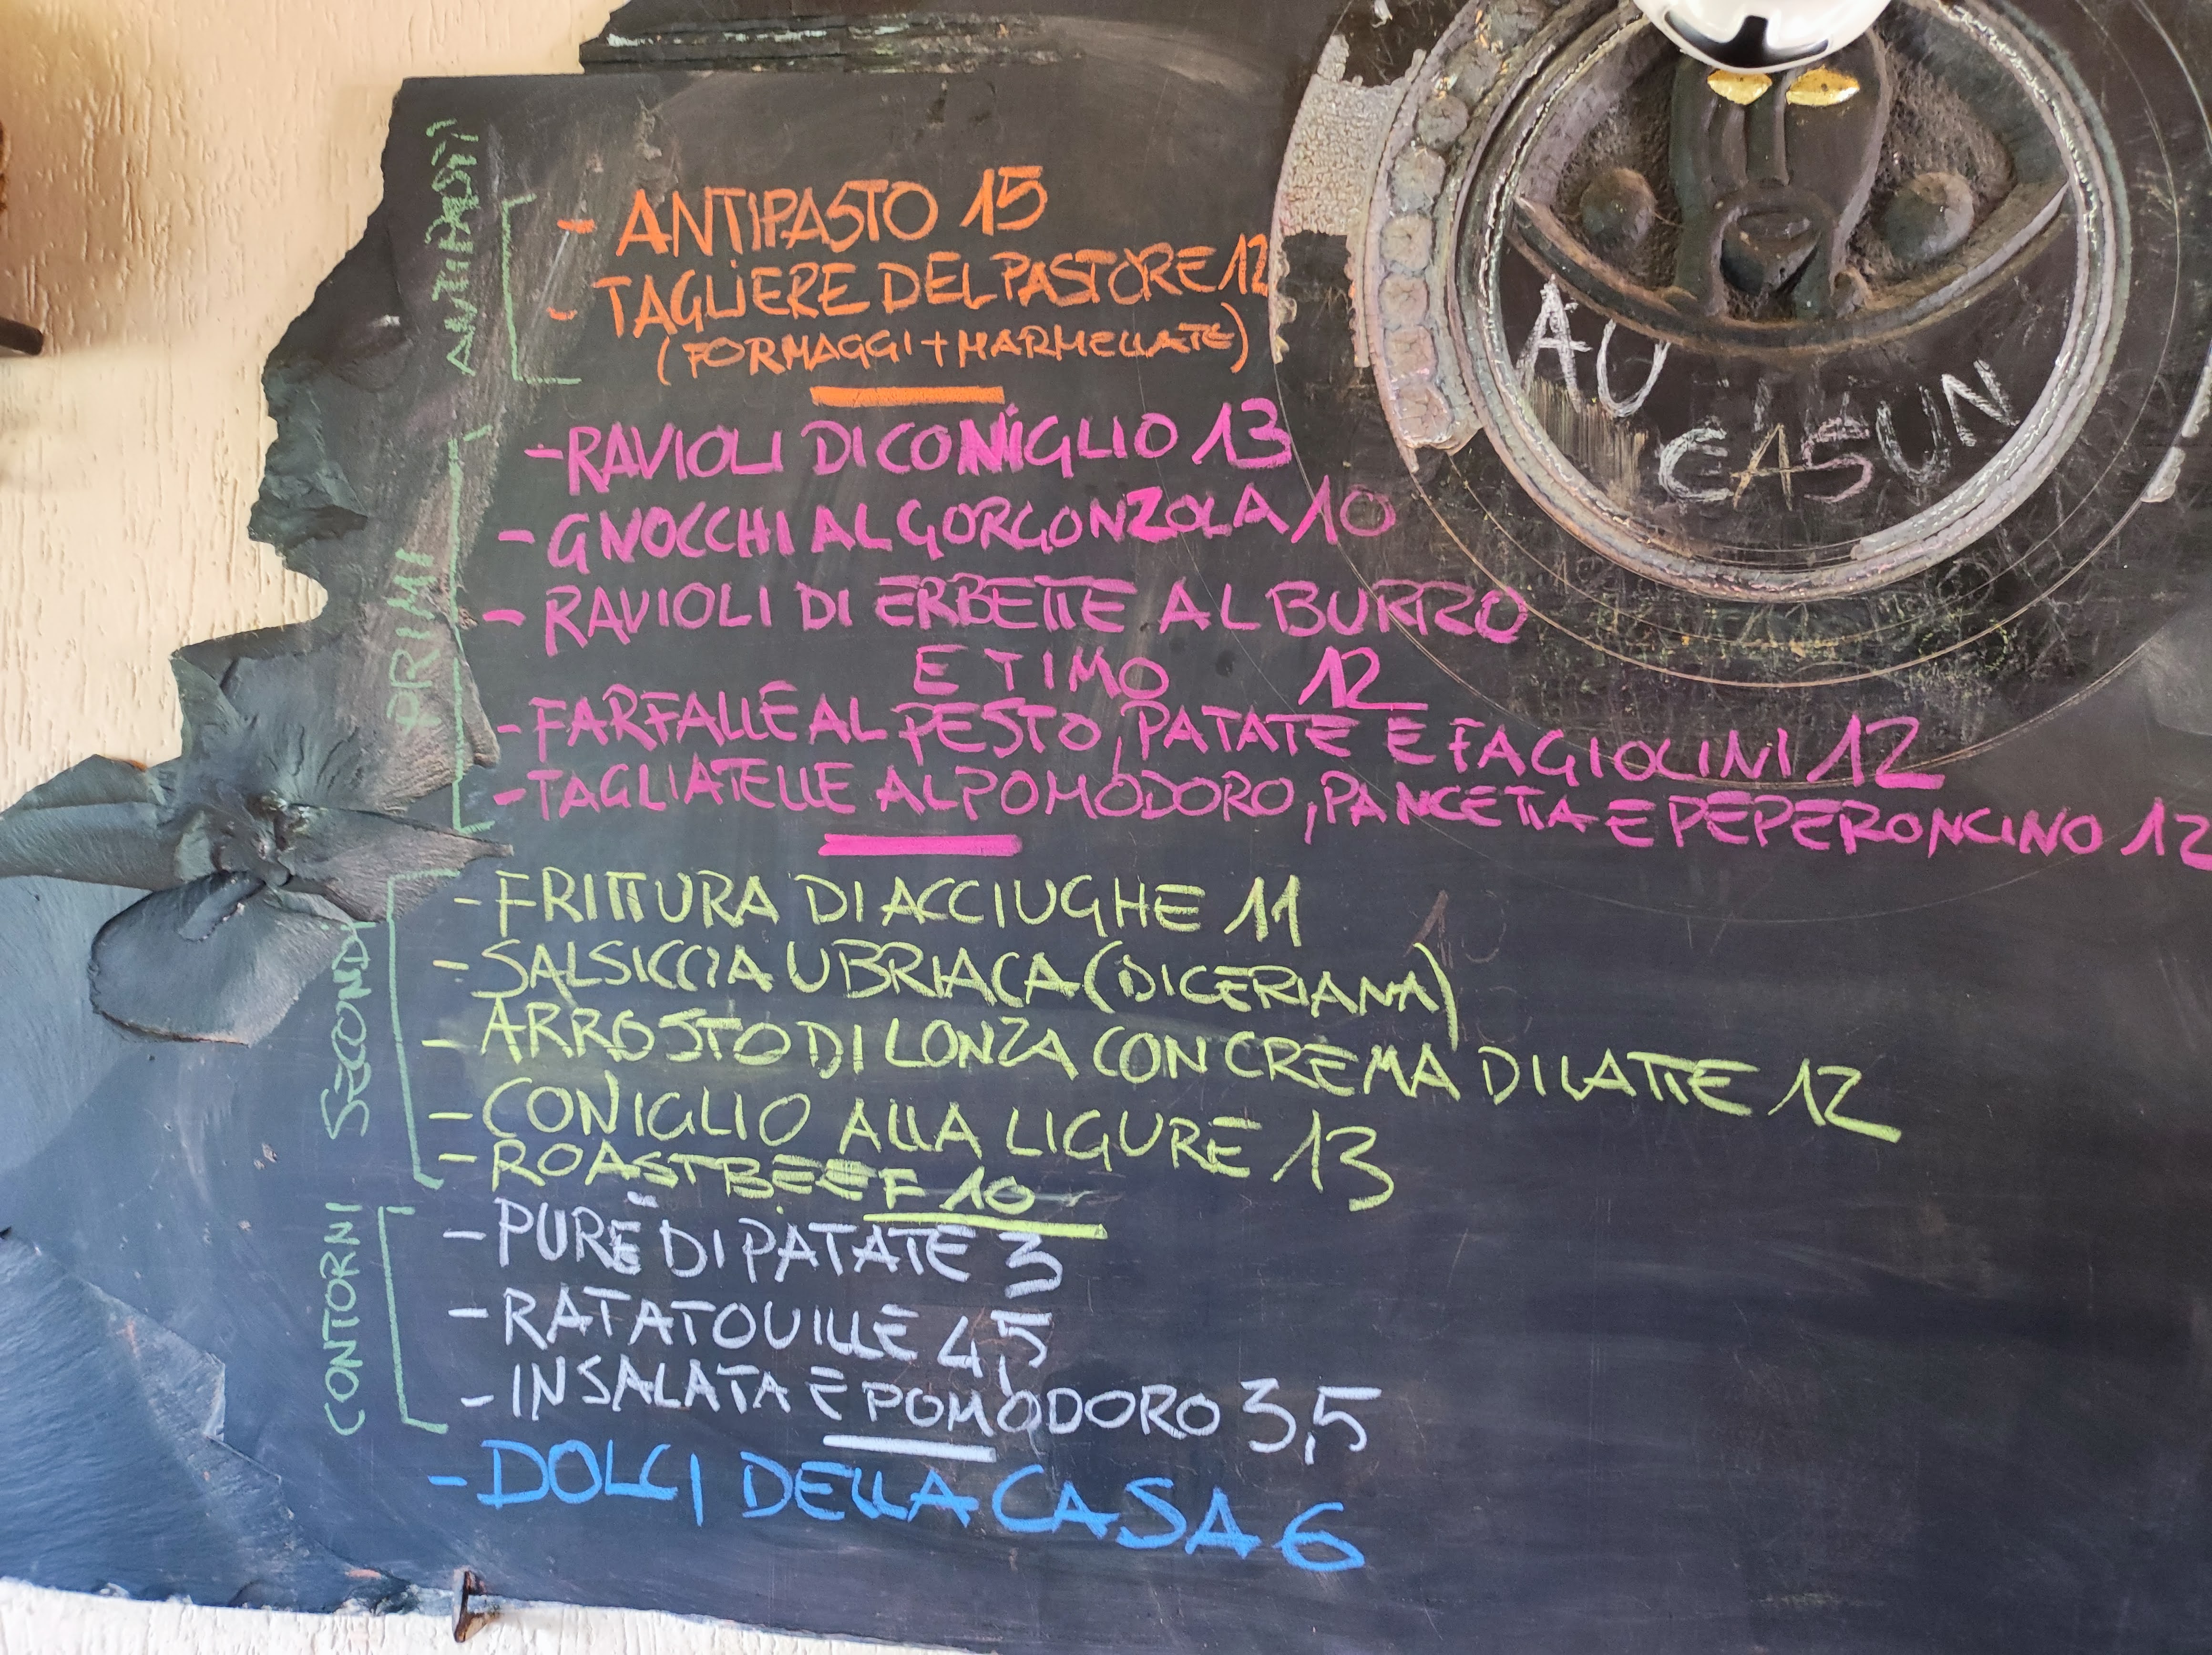 ANTIPASTI
- ANTIPASTO 15
- TAGLIERE DEL PASTORE 12
(FORMAGGI + MARMELLATE)
AU
CASUN
PRIMI
- RAVIOLI DI CONIGLIO 13
- GNOCCHI AL GORGONZOLA 10
- RAVIOLI DI ERBETTE AL BURRO
E TIMO 12
- FARFALLE AL PESTO, PATATE E FAGIOLINI 12
- TAGLIATELLE AL POMODORO, PANCETTA E PEPERONCINO 12
SECONDI
- FRITTURA DI ACCIUGHE 11
- SALSICCIA UBRIACA (DI CERIANA) 10
- ARROSTO DI LONZA CON CREMA DI LATTE 12
- CONIGLIO ALLA LIGURE 13
- ROASTBEEF 10
CONTORNI
- PURÈ DI PATATE 3
- RATATOUILLE 4,5
- INSALATA E POMODORO 3,5
- DOLCI DELLA CASA 6